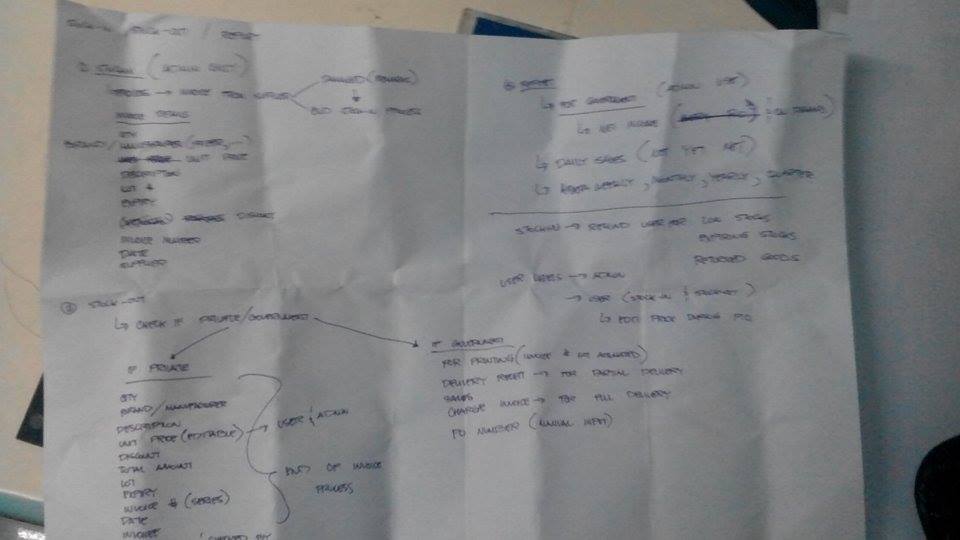 STOCK-IN / STOCK-OUT / REPORT
① STOCK-IN (ADMIN ONLY)
→ INVOICE FROM SUPPLIER
DAMAGED
END STOCK-IN PROCESS
INVOICE DETAILS
QTY
BRAND / MANUFACTURER
UNIT PRICE
DESCRIPTION
LOT #
EXPIRY
DISCOUNT
INVOICE NUMBER
DATE
SUPPLIER
② STOCK-OUT
↳ CHECK IF PRIVATE/GOVERNMENT
IF PRIVATE
QTY
BRAND/MANUFACTURER
DESCRIPTION
UNIT PRICE (EDITABLE) → USER & ADMIN
DISCOUNT
TOTAL AMOUNT
LOT
EXPIRY
INVOICE # (SERIES)
DATE
INVOICE
END OF INVOICE
PROCESS
IF GOVERNMENT
FOR PRINTING (INVOICE #
DELIVERY RECEIPT → FOR PARTIAL DELIVERY
SALES
CHARGE INVOICE → FOR FULL DELIVERY
PO NUMBER (MANUAL INPUT)
③ REPORT
↳ FOR GOVERNMENT (ADMIN
↳ INVOICE
↳ DAILY SALES
↳ WEEKLY, MONTHLY, YEARLY, QUARTER
STOCK-IN → REMIND USER FOR LOW STOCKS
EXPIRING STOCKS
RETURNED GOODS
USER LEVELS → ADMIN
→ USER (STOCK-IN & STOCK-OUT)
↳ EDIT PRICE DURING P.O.